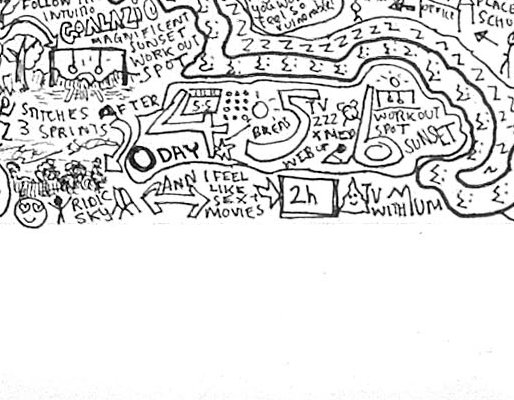 FOLLOW M
INTUITIO
GOALAZO
MAGNIFICENT
SUNSET
WORKOUT
SPOT
YOU
FEEL SO
VULNERABLE!
OFFICE
PLACE
SCHO
ZZZZZZZZZZ
STITCHES
3 SPRINTS
AFTER
4
S.S
BREAD
5
TV
ZZZ
X MED
6
WORKOUT
SPOT
SUNSET
0 DAY
RIDIC
SKY
ANN
I FEEL
LIKE
SEXY
MOVIES
2h
TV M
WITH UM